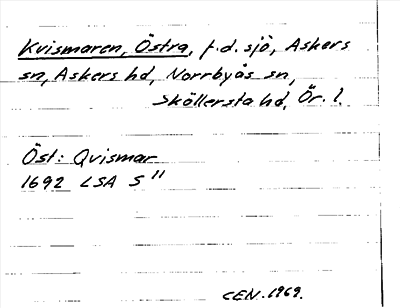 Kvismaren, Östra, f.d. sjö, Askers
sn, Askers hd, Norrbyås sn,
Sköllersta hd, Ör. l.
Öst: Qvismar
1692 LSA S 11
CEN. 1969.